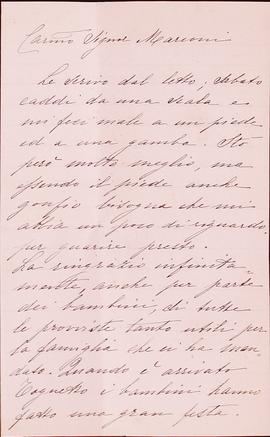 Carmo Signor Marconi
Le scrivo dal letto; sabato
caddi da una scala e
mi feci male a un piede
ed a una gamba. Sto
però molto meglio, ma
essendo il piede anche
gonfio bisogna che mi
abia un poco di riguardo
per guarire presto.
La ringrazio infinita-
mente, anche per parte
dei bambini, di tutte
le provviste tanto utili per
la famiglia che ci ha man-
dato. Quando è arrivato
i bambini hanno
fatto una gran festa.